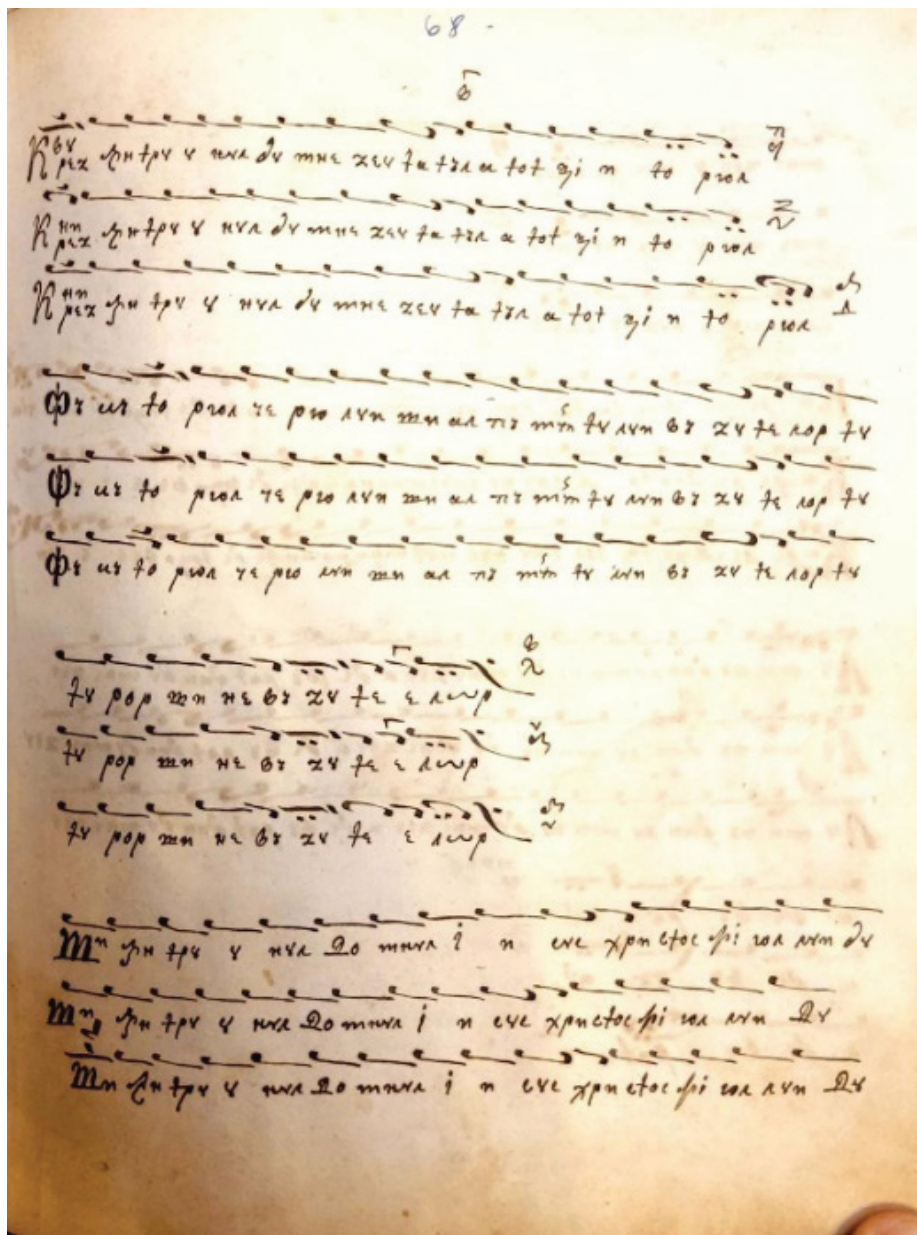 68 -
Крез ꙟн трꙋ ꙋ нꙋл дꙋ мне зеꙋ та тъл а тот ці и то рюл
Крез ꙟн трꙋ ꙋ нꙋл дꙋ мне зеꙋ та тъл а тот ці и то рюл
Крез ꙟн трꙋ ꙋ нꙋл дꙋ мне зеꙋ та тъл а тот ці и то рюл
Фъ къ то рюл че рю лꙋи ши ал пъ тꙋ лꙋи въ зꙋ те лор тꙋ
Фъ къ то рюл че рю лꙋи ши ал пъ тꙋ лꙋи въ зꙋ те лор тꙋ
Фъ къ то рюл че рю лꙋи ши ал пъ тꙋ лꙋи въ зꙋ те лор тꙋ
тꙋ рор ши не въ зꙋ те е лѡр
тꙋ рор ши не въ зꙋ те е лѡр
тꙋ рор ши не въ зꙋ те е лѡр
Ши ꙟн трꙋ ꙋ нꙋл До мнꙋл і и сꙋс христос фі юл лꙋи дꙋ
Ши ꙟн трꙋ ꙋ нꙋл До мнꙋл і и сꙋс христос фі юл лꙋи Дꙋ
Ши ꙟн трꙋ ꙋ нꙋл До мнꙋл і и сꙋс христос фі юл лꙋи Дꙋ